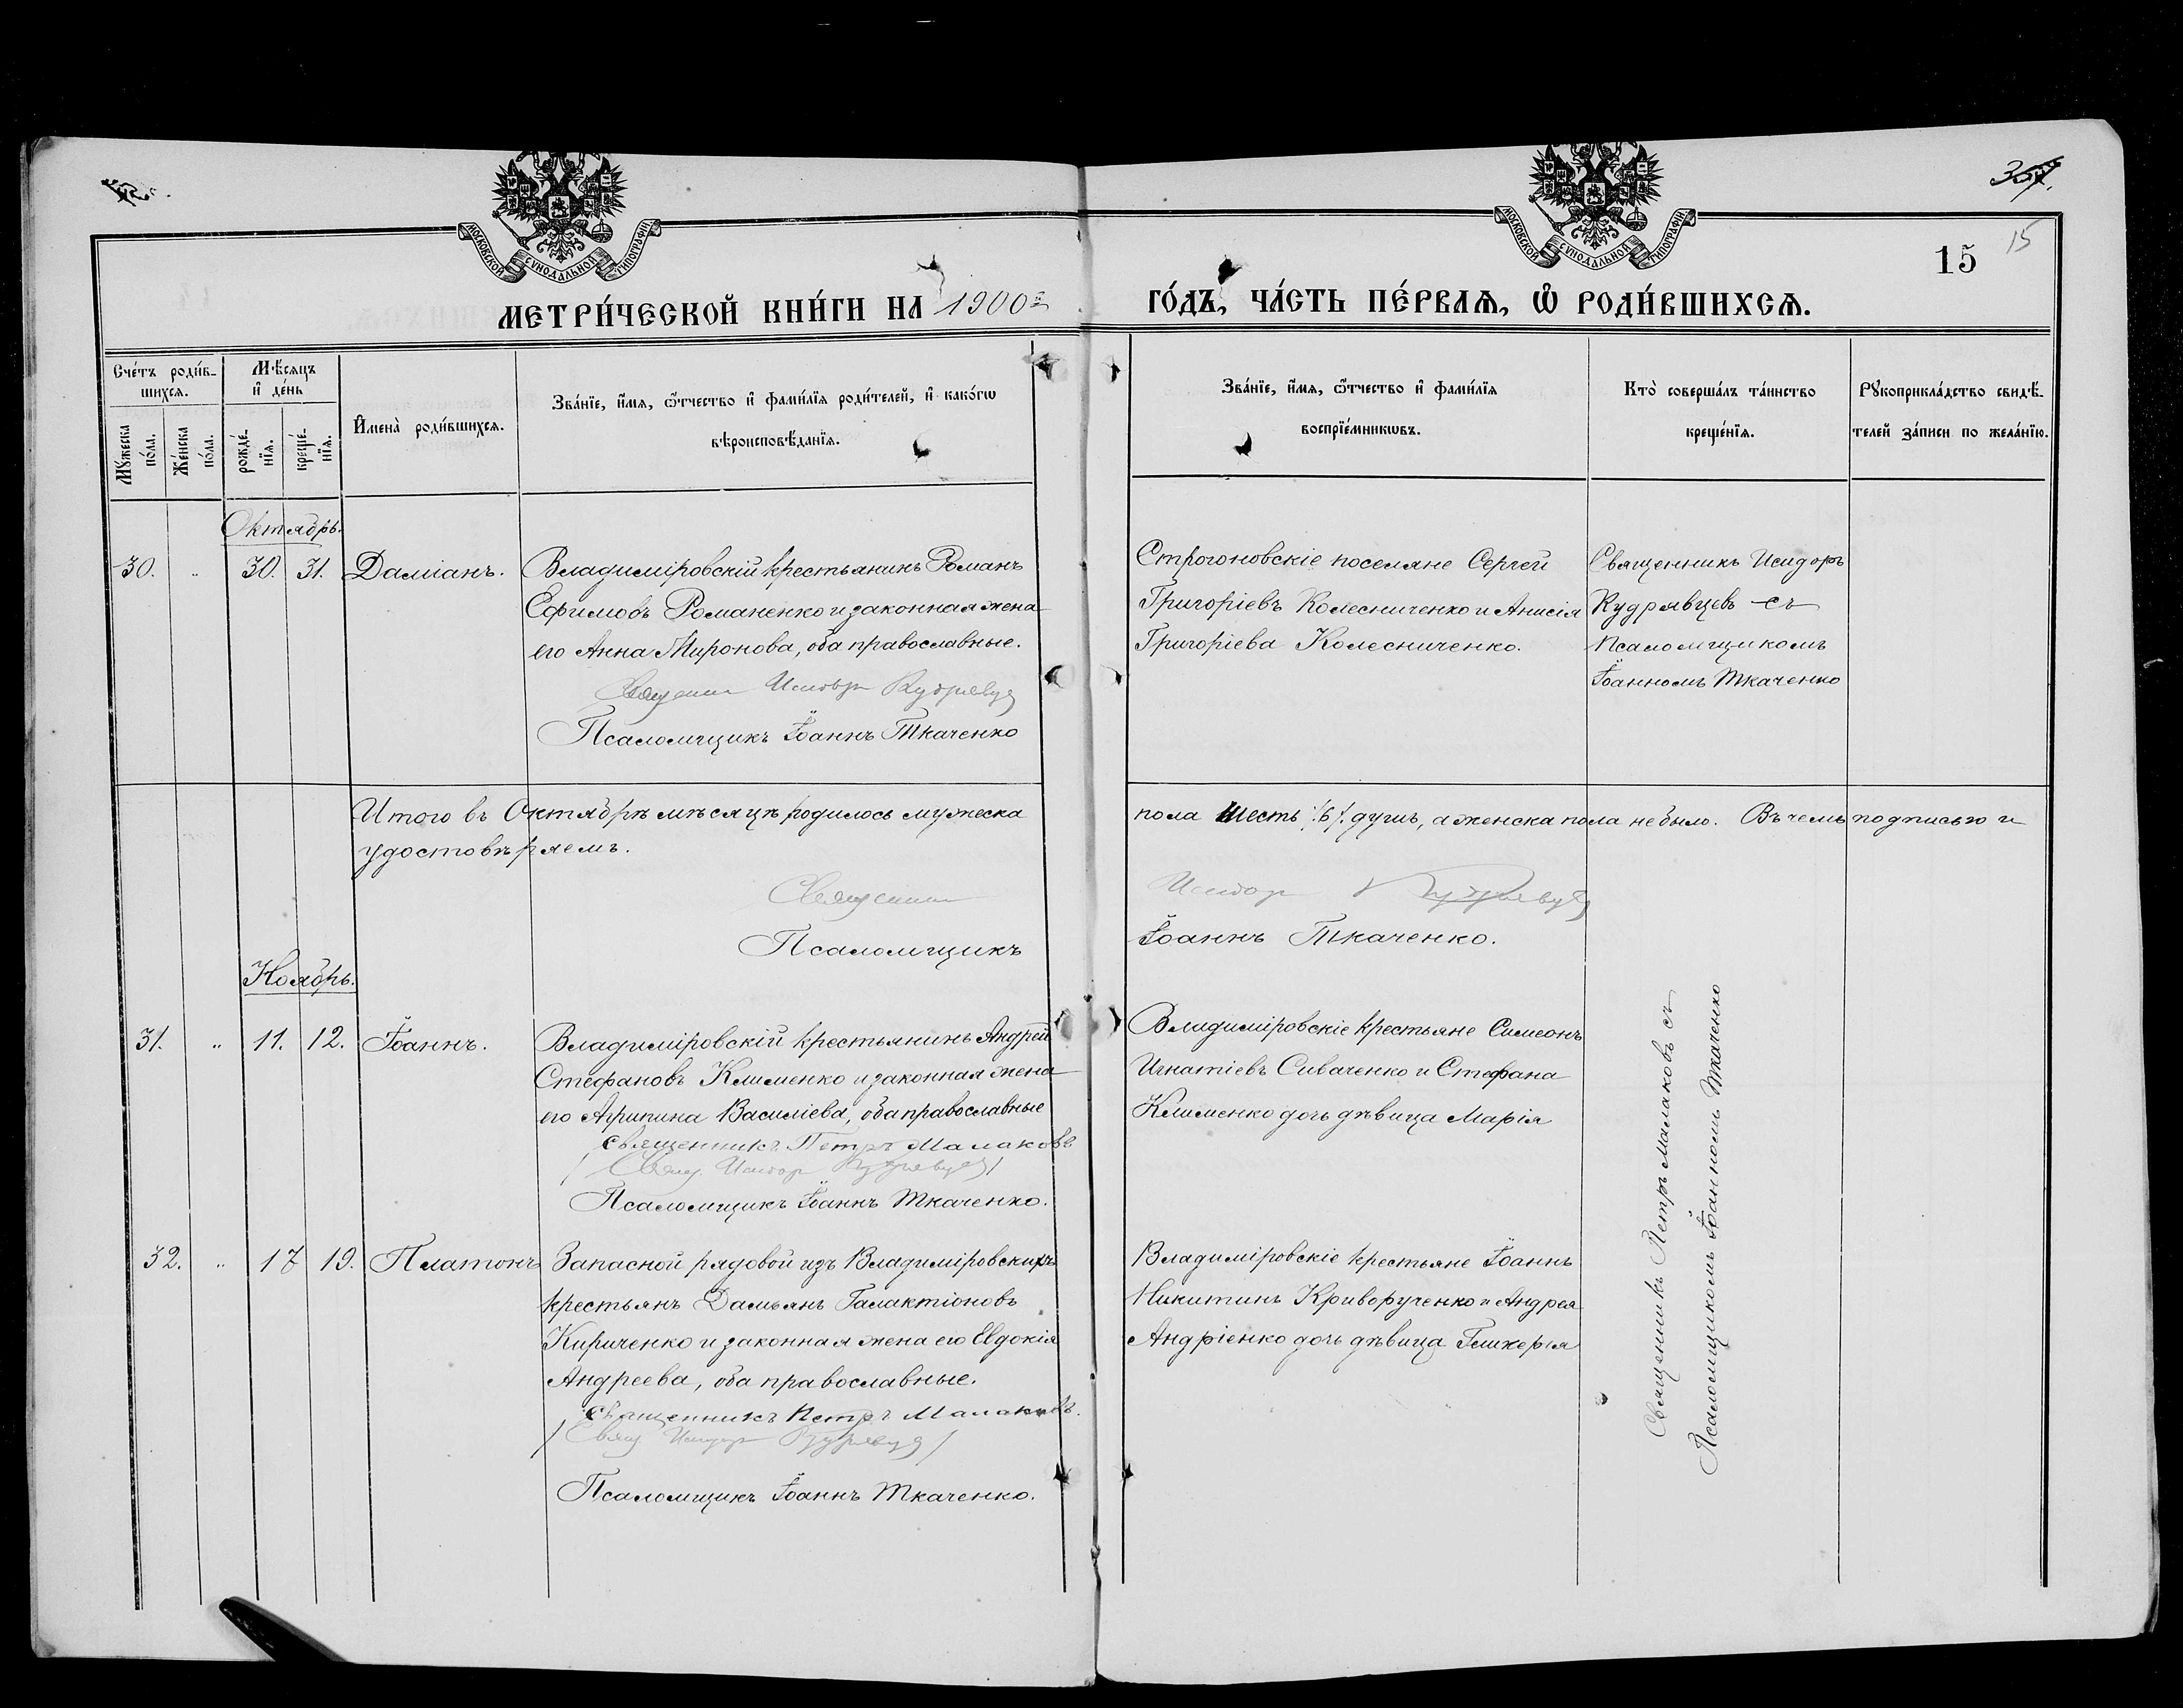 357.
15
15
МОСКОВСКОЙ СѴНОДАЛЬНОЙ ТИПОГРАФІИ
МОСКОВСКОЙ СѴНОДАЛЬНОЙ ТИПОГРАФІИ
МЕТРИ́ЧЕСКОЙ КНИ́ГИ НА 1900й
ГО́ДЪ, ЧА́СТЬ ПЕ́РВАѦ, Ѡ҆ РОДИ́ВШИХСѦ.
Сче́тъ роди́в-
шихсѧ.
Мꙋ́жеска
по́ла.
Же́нска
по́ла.
Мѣ́сѧцъ
и҆ де́нь
рожде́-
нїѧ.
креще́-
нїѧ.
И҆мена̀ роди́вшихсѧ.
Зва́нїе, и҆́мѧ, ѻ҆́тчество и҆ фами́лїѧ роди́телей, и҆ како́гѡ
вѣроисповѣ́данїѧ.
Зва́нїе, и҆́мѧ, ѻ҆́тчество и҆ фами́лїѧ
воспрїе́мникѡвъ.
Кто̀ соверша́лъ та́инство
креще́нїѧ.
Рꙋкоприкла́дство свидѣ́-
телей за́писи по жела́нїю.
Октябрь.
30. „ 30. 31. Даміанъ.
Владиміровскій крестьянинъ Романъ
Ефимовъ Романенко и законная жена
его Анна Миронова, оба православные.
Священник Исидор Кудрявцев
Псаломщикъ Іоаннъ Ткаченко
Строгоновскіе поселяне Сергей
Григоріевъ Колесниченко и Анисія
Григоріева Колесниченко.
Священникъ Исидоръ
Кудрявцевъ съ
Псаломщикомъ
Іоанномъ Ткаченко
Итого въ Октябрѣ мѣсяцѣ родилось мужеска пола шесть /6/ душъ, а женска пола не было. Въ чемъ подписью и
удостовѣряемъ.
Священник Исидор Кудрявцев
Псаломщикъ Іоаннъ Ткаченко.
Ноябрь.
31. „ 11. 12. Іоаннъ.
Владиміровскій крестьянинъ Андрей
Стефановъ Клименко и законная жена
его Агрипина Василіева, оба православные
священникъ Петръ Малаковъ
/Свящ Исидор Кудрявцев/
Псаломщикъ Іоаннъ Ткаченко.
Владиміровскіе крестьяне Симеонъ
Игнатіевъ Сиваченко и Стефана
Клименко дочь дѣвица Марія
32. „ 17 19. Платонъ
Запасной рядовой изъ Владиміровскихъ
крестьянъ Дамьянъ Галактіоновъ
Кириченко и законная жена его Евдокія
Андреева, оба православные.
священникъ Петръ Малаковъ.
/Свящ Исидор Кудрявцев/
Псаломщикъ Іоаннъ Ткаченко.
Владиміровскіе крестьяне Іоаннъ
Никитинъ Криворученко и Андрея
Андріенко дочь дѣвица Гликерія
Священникъ Петръ Малаковъ съ
Псаломщикомъ Іоанномъ Ткаченко